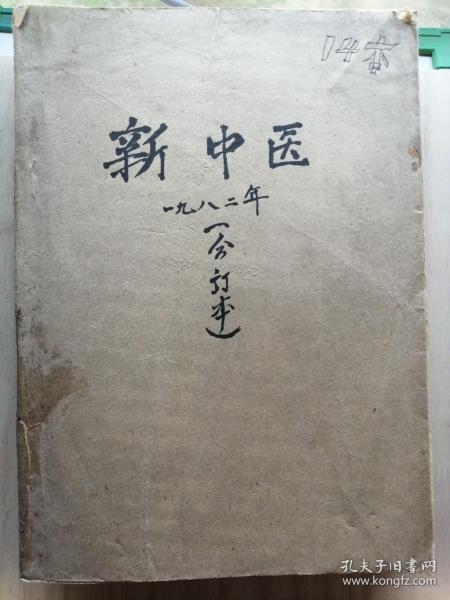 14本
新中医
一九八二年
(合订本)
孔夫子旧书网
www.kongfz.com